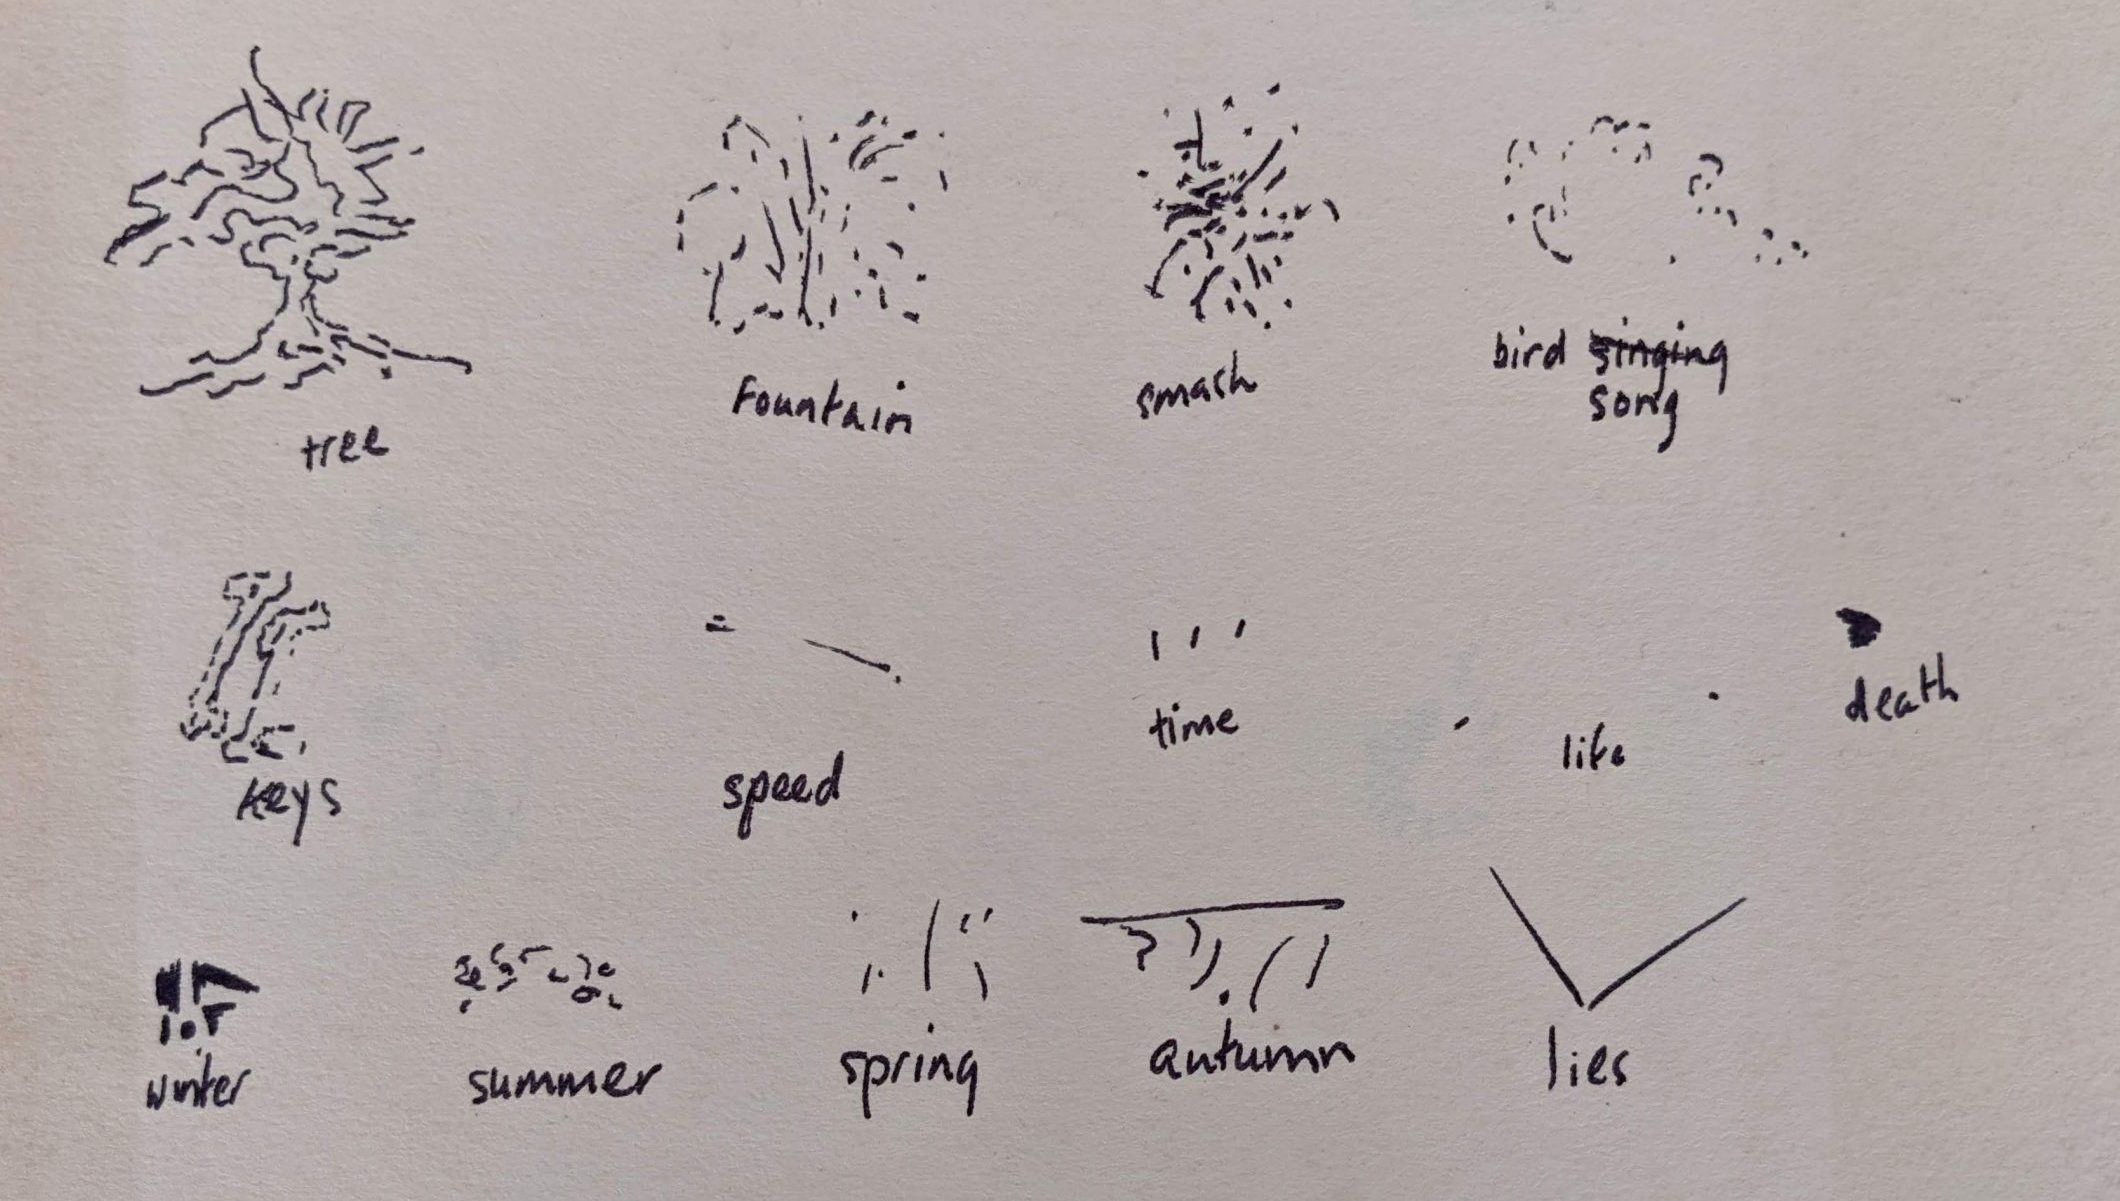 tree
fountain
smash
bird singing
song
keys
speed
time
life
death
winter
summer
spring
autumn
lies